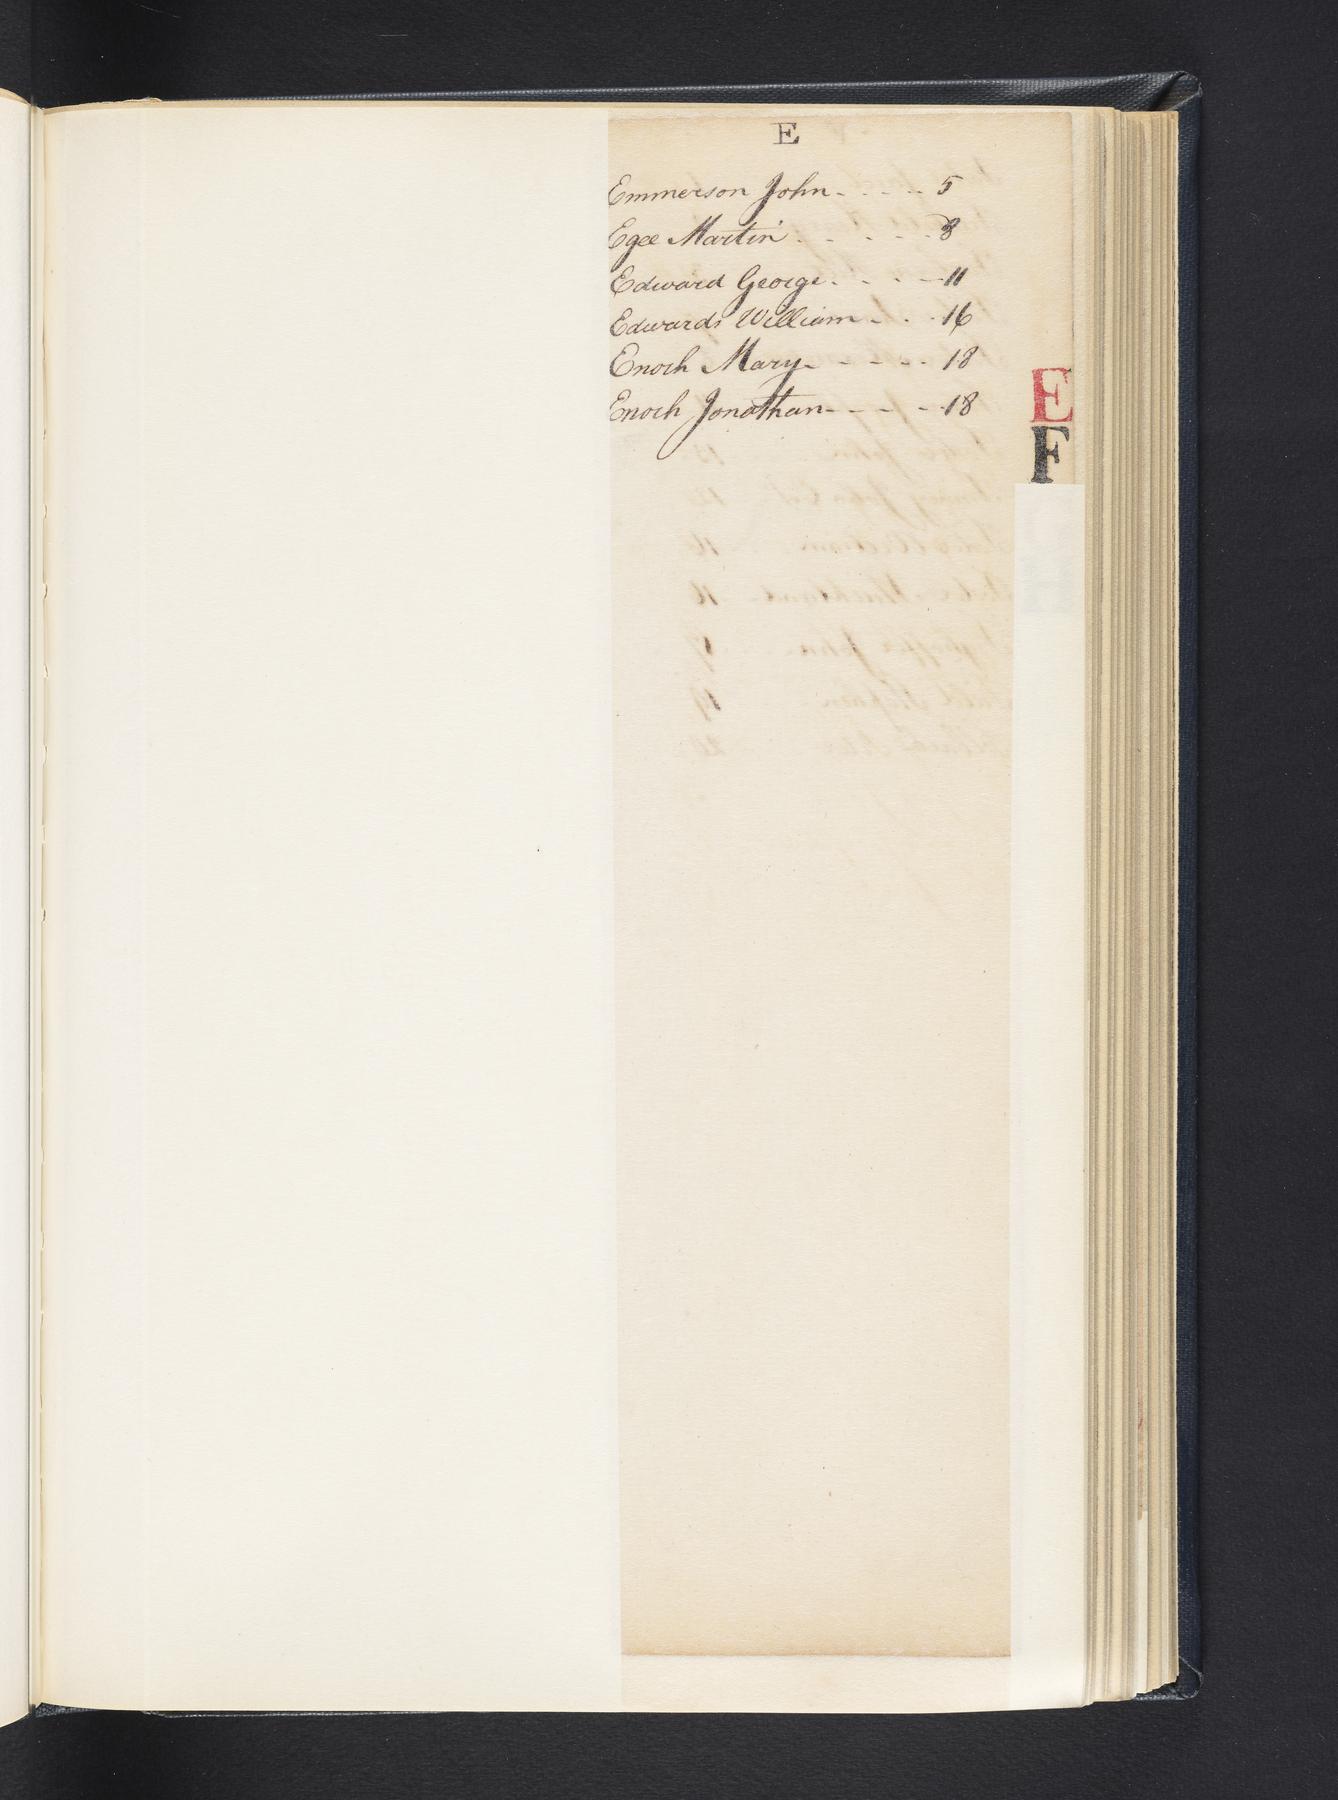 E
Emmerson John - - - - 5
Egee Martin - - - - 8
Edward George - - - - 11
Edwards William - - - 16
Enoch Mary - - - - 18
Enoch Jonathan - - - - 18
E
F